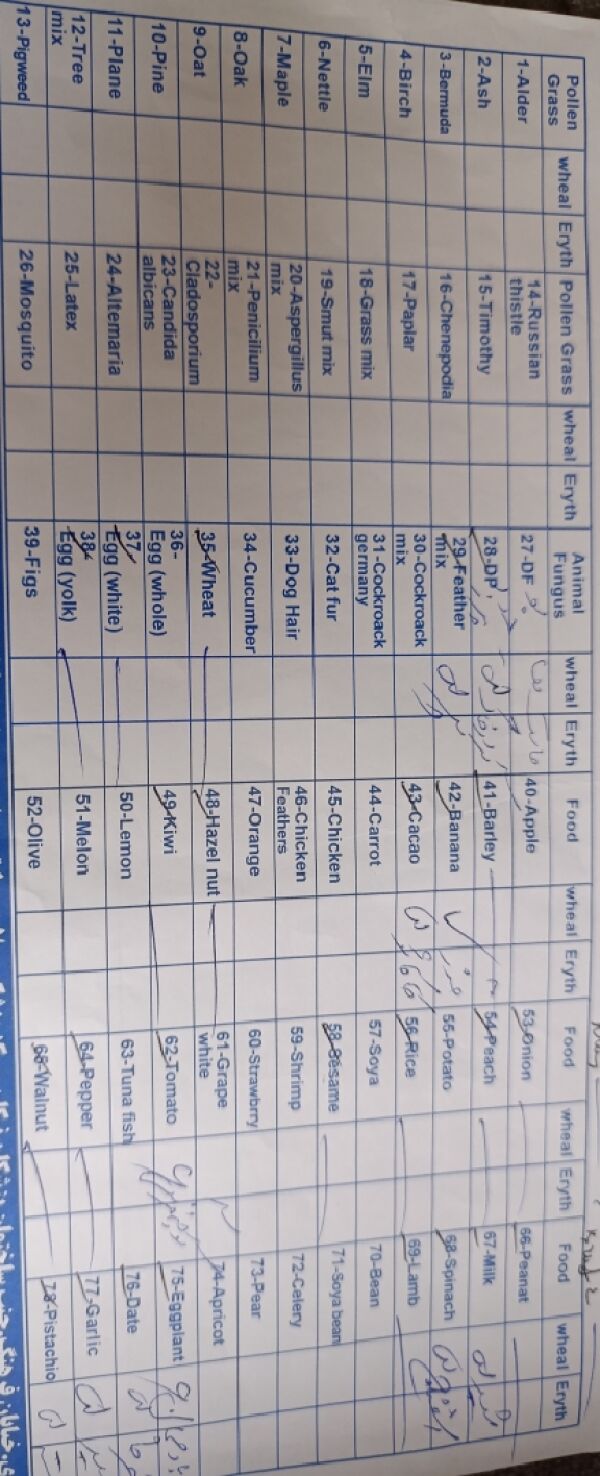 Pollen Grass wheal Eryth Pollen Grass wheal Eryth Animal Fungus wheal Eryth Food wheal Eryth Food wheal Eryth Food wheal Eryth
1-Alder 14-Russian thistle 27-DF 40-Apple 53-Onion 66-Peanat
2-Ash 15-Timothy 28-DP 41-Barley 54-Peach 67-Milk
3-Bermuda 16-Chenepodia 29-Feather mix 42-Banana 55-Potato 68-Spinach
4-Birch 17-Paplar 30-Cockroack mix 43-Cacao 56-Rice 69-Lamb
5-Elm 18-Grass mix 31-Cockroack germany 44-Carrot 57-Soya 70-Bean
6-Nettle 19-Smut mix 32-Cat fur 45-Chicken 58-Sesame 71-Soya bean
7-Maple 20-Aspergillus mix 33-Dog Hair 46-Chicken Feathers 59-Shrimp 72-Celery
8-Oak 21-Penicilium mix 34-Cucumber 47-Orange 60-Strawbrry 73-Pear
9-Oat 22-Cladosporium 35-Wheat 48-Hazel nut 61-Grape white 74-Apricot
10-Pine 23-Candida albicans 36-Egg (whole) 49-Kiwi 62-Tomato 75-Eggplant
11-Plane 24-Altemaria 37-Egg (white) 50-Lemon 63-Tuna fish 76-Date
12-Tree mix 25-Latex 38-Egg (yolk) 51-Melon 64-Pepper 77-Garlic
13-Pigweed 26-Mosquito 39-Figs 52-Olive 65-Walnut 78-Pistachio